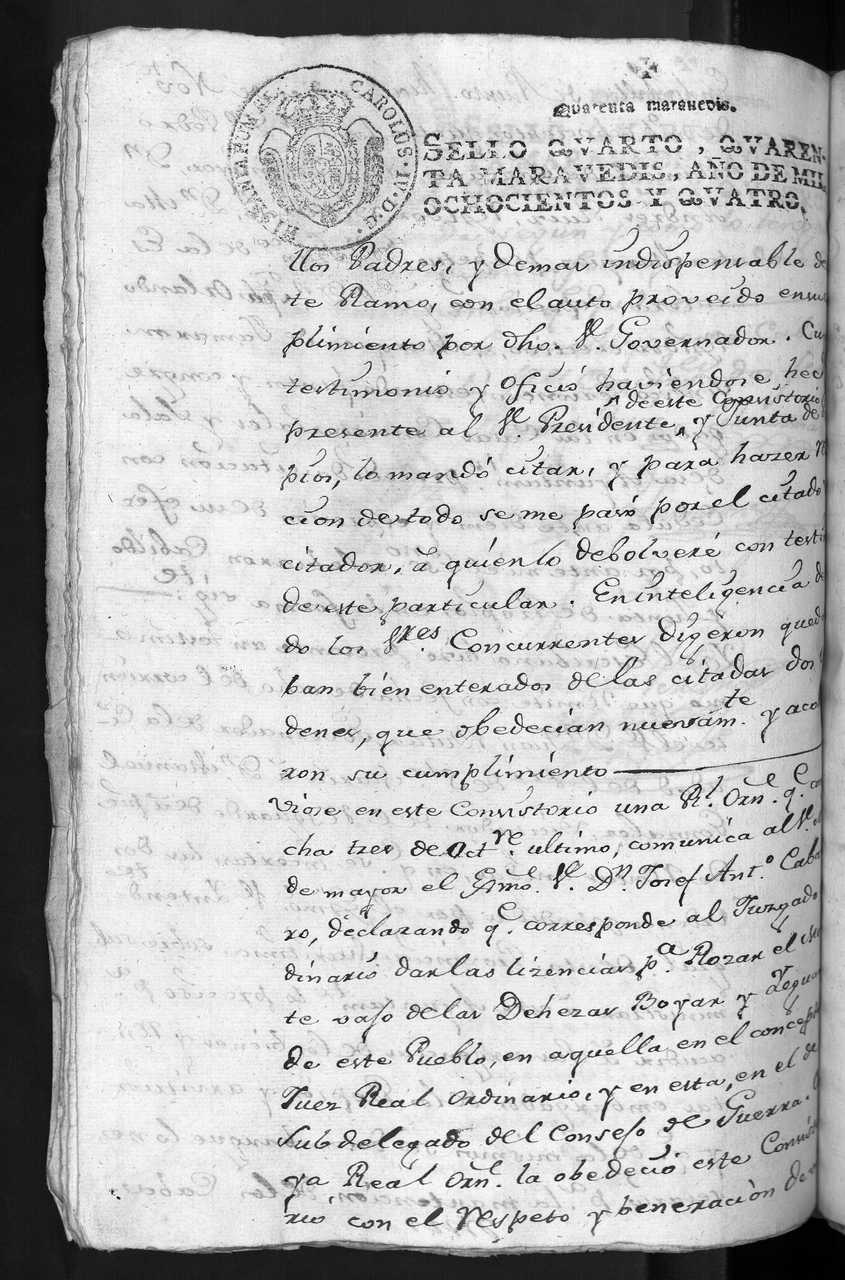 HISPANIARUM REX CAROLUS·IV·D·G·
Quarenta maravedis.
SELLO QVARTO, QVAREN-
TA MARAVEDIS, AÑO DE MIL
OCHOCIENTOS Y QVATRO.
llos Padres, y demas indispensable de
te Ramo, con el auto proveido en
plimiento por dho. Sr. Governador. Cu
testimonio y oficio haviendose hec
^ de este Consistorio
presente al Sr. Presidente ^ y Junta de
pios, lo mandó citar, y para hazer
cion de todo se me pasó por el citado
citador, á quien lo debolveré con testi
de este particular. En inteligencia de
do los Sres. Concurrentes digeron queda
ban bien enterados de las citadas dos
denes, que obedecian nuevamte. y aco
ron su cumplimiento
Viose en este Consistorio una Rl. Orn. q.e
cha tres de Octre. ultimo, comunica al Sr.
de mayor el Exmo. Sr. Dn. Josef Anto. Caba
ro, declarando q.e corresponde al Juzgado
dinario dar las lizencias pa. Rozar el
te vaso de las Dehezas Boyar y Yegua
de este Pueblo, en aquella en el concepto
Juez Real Ordinario, y en esta, en el de
Subdelegado del Consejo de Guerra.
ya Real Orn. la obedeció este Consisto
rio con el respeto y beneracion de